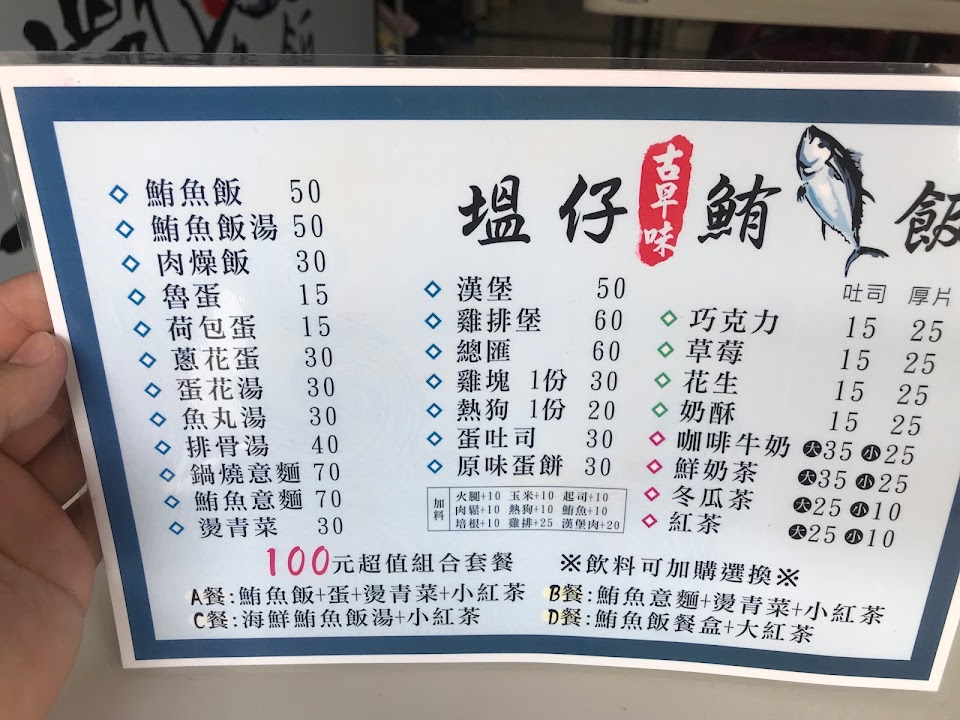 塭仔古早味鮪飯
鮪魚飯 50
鮪魚飯湯 50
肉燥飯 30
魯蛋 15
荷包蛋 15
蔥花蛋 30
蛋花湯 30
魚丸湯 30
排骨湯 40
鍋燒意麵 70
鮪魚意麵 70
燙青菜 30
漢堡 50
雞排堡 60
總匯 60
雞塊 1份 30
熱狗 1份 20
蛋吐司 30
原味蛋餅 30
加料
火腿+10 玉米+10 起司+10
肉鬆+10 熱狗+10 鮪魚+10
培根+10 雞排+25 漢堡肉+20
吐司 厚片
巧克力 15 25
草莓 15 25
花生 15 25
奶酥 15 25
咖啡牛奶 大35 小25
鮮奶茶 大35 小25
冬瓜茶 大25 小10
紅茶 大25 小10
100元超值組合套餐 ※飲料可加購選換※
A餐:鮪魚飯+蛋+燙青菜+小紅茶
B餐:鮪魚意麵+燙青菜+小紅茶
C餐:海鮮鮪魚飯湯+小紅茶
D餐:鮪魚飯餐盒+大紅茶